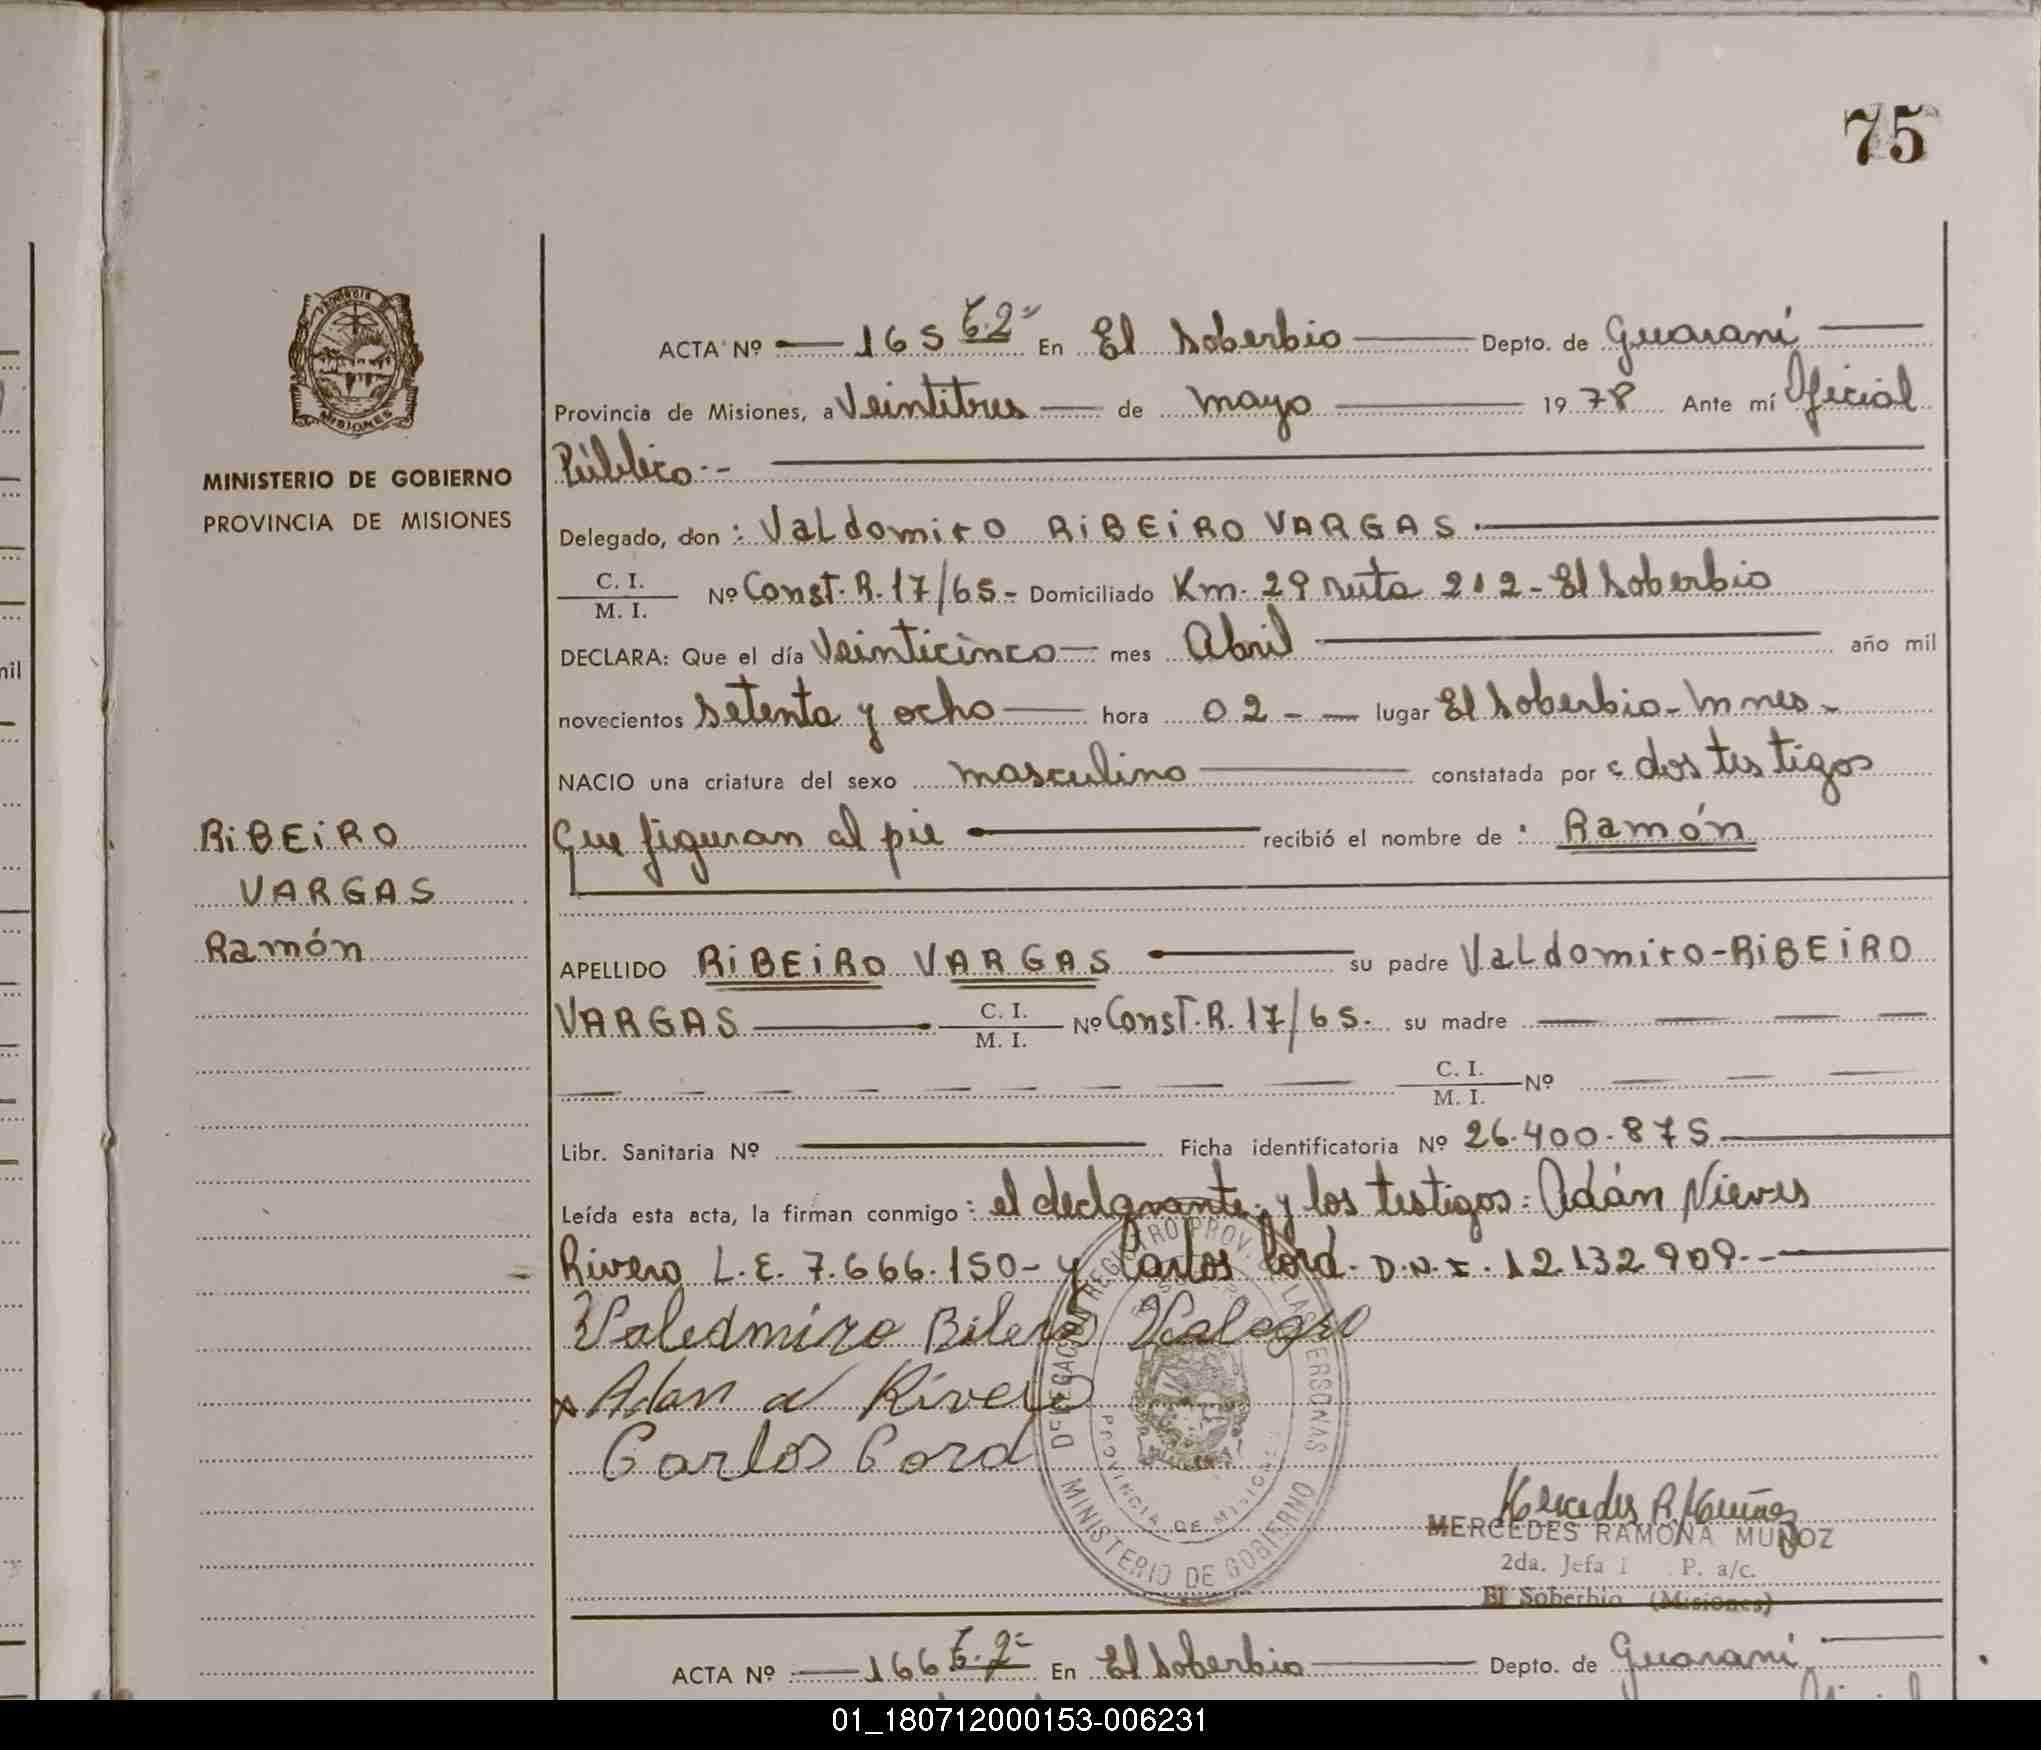 75
ACTA Nº 165 T.2º En El Soberbio Depto. de Guaraní
Provincia de Misiones, a Veintitres de mayo 1978 Ante mí Oficial
Público.-
MINISTERIO DE GOBIERNO
PROVINCIA DE MISIONES
Delegado, don: Valdomiro RiBEiRO VARGAS.
C. I.
M. I. Nº Const. R. 17/65.- Domiciliado Km. 29 ruta 212 - El Soberbio
DECLARA: Que el día Veinticinco mes Abril año mil
novecientos setenta y ocho hora 02 - - lugar El Soberbio - Mnes -
NACIO una criatura del sexo masculino constatada por: dos testigos
Que figuran al pie recibió el nombre de: Ramón
RiBEiRO
VARGAS
Ramón
APELLIDO RiBEiRO VARGAS su padre Valdomiro-RiBEiRO
VARGAS C. I.
M. I. Nº Const. R. 17/65. su madre
C. I.
M. I. Nº
Libr. Sanitaria Nº Ficha identificatoria Nº 26.400.875
Leída esta acta, la firman conmigo: el declarante y los testigos: Adán Nieves
Rivero L.E. 7.666.150- y Carlos Cord. D.N.I. 12.132.909.-
Valedmiro
Adan Rivero
Carlos Cord
DELEGACION REGISTRO PROV. LAS PERSONAS
PROVINCIA DE MISIONES
MINISTERIO DE GOBIERNO
Mercedes R. Muñoz
MERCEDES RAMONA MUÑOZ
2da. Jefa P. a/c.
El Soberbio (Misiones)
ACTA Nº 166 T.2º En El Soberbio Depto. de Guaraní
01_180712000153-006231